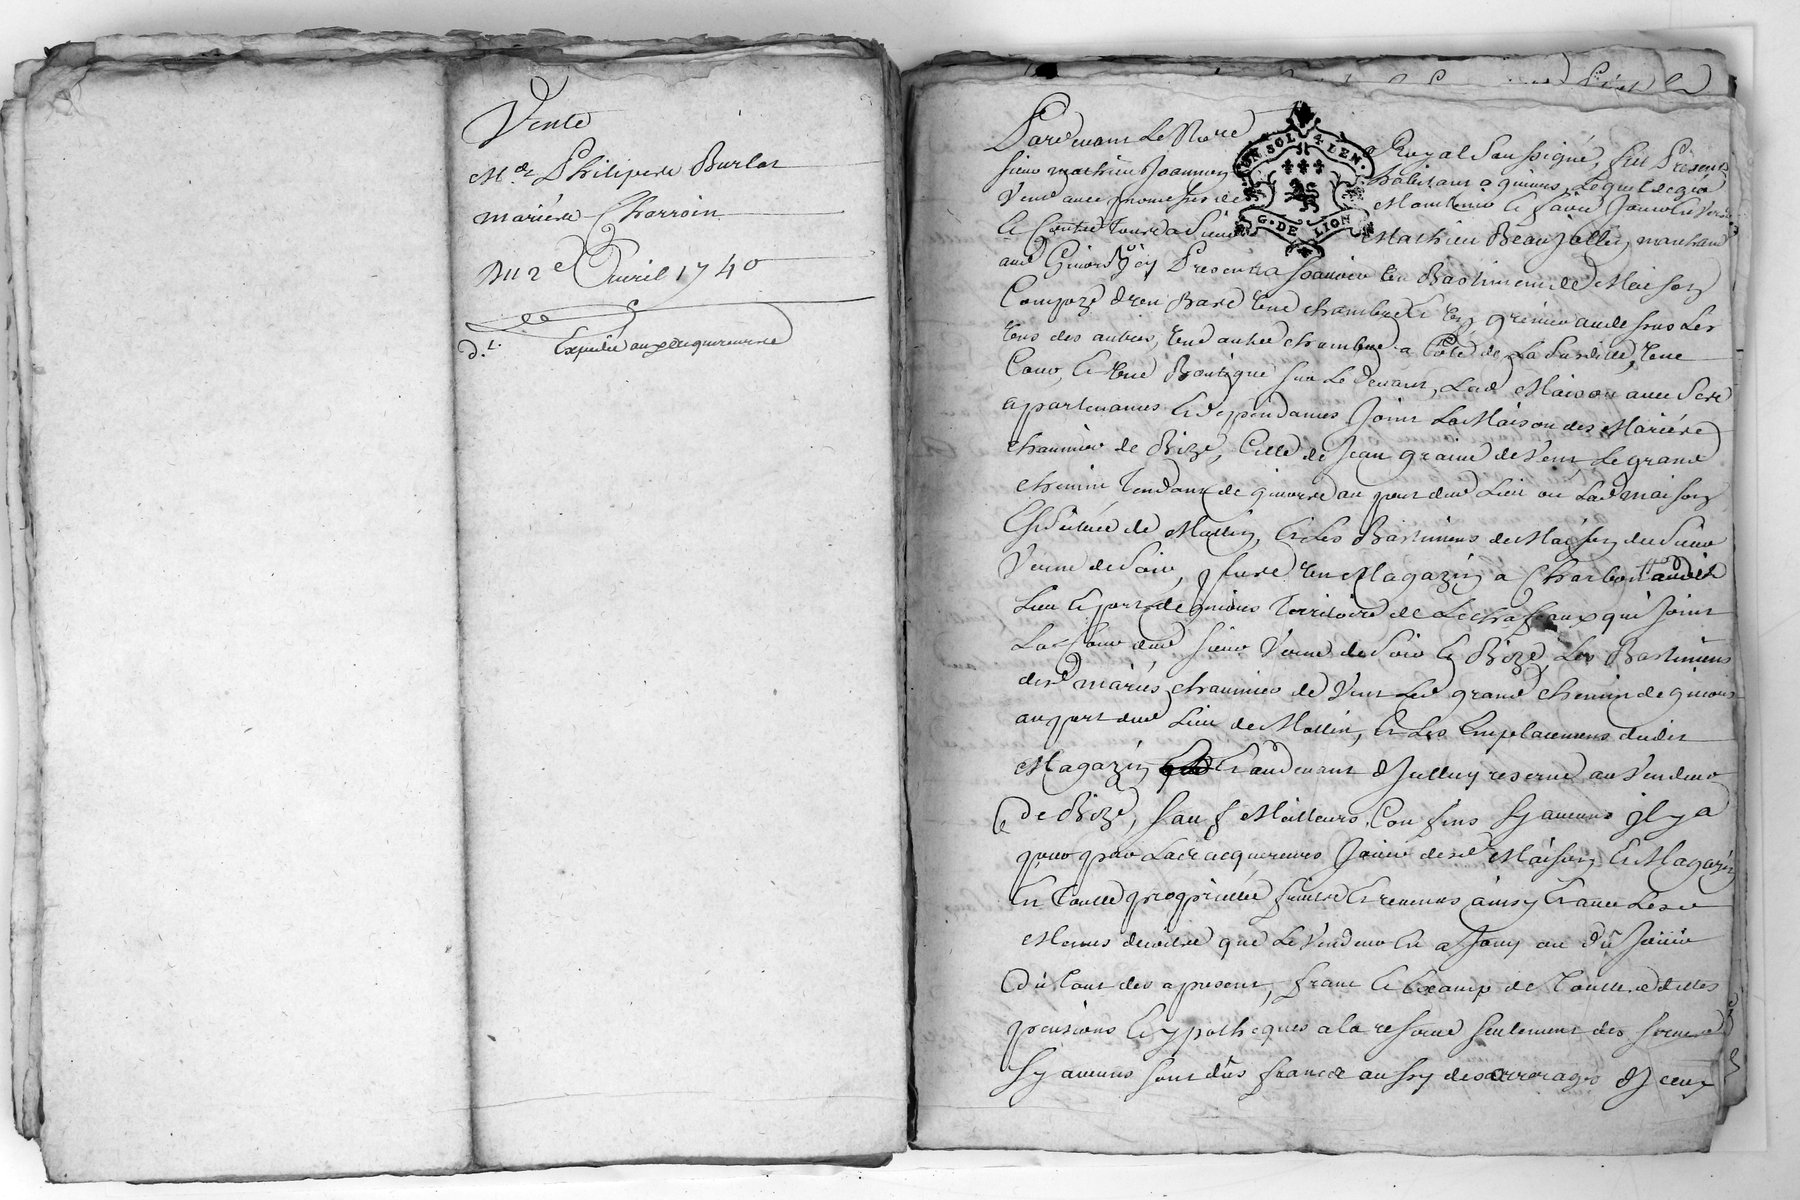 Vente
Me Philiperde Burlat
mariés Charroin
Du 2e Avril 1740
d.t. Expediée aux acquereurs
UN SOL 4 DEN.
G. DE LION
Pardevant Le Nore Royal Soussigné, fut Present
sieur mathieu Joannon habitant a givors, Lequel de gré
Vend avec promesses de Maintenir et faire Jouir Envers
et Contre tous a Sieur Mathieu Beaujollin marchand
aud Givors Jcy Present a Scavoir un Bastiment de Maison
Composé d'un Bas une chambre et un grenier au dessus Les
uns des autres, une autre chambre a Côté de La Susdite, une
Cour, et une Boutique sur Le devant, Lad Maison avec Ses
appartenances et dependances Joint La Maison des Mariés
chaumier de Bize, Celle de Jean de Vent Le grand
chemin Tendant de givors au port dud Lieu ou Lad maison
Est Située de Matin, et Les Bastiments de Maison du Sieur
Verne de Soir, plus un Magazin a Charbon audit
Lieu et port de givors Territoire de Lechafeaux qui Joint
La Cour dud sieur Verne de Soir et Bize, Les Bastimens
desd mariés chaumier de Vent Led grand chemin de givors
au port dud Lieu de Matin, et Les Emplacemens dudit
Magazin et au devant d'Jcelluy reservé au Vendeur
de Bize, sauf Meilleurs Confins sy aucuns Jl y a
pour par Led acquereur Jouir desd Maison et Magazin
En Toutte proprietée fruits et revenus ainsy et avec Les
Mêmes droits que Le Vendeur En a Jouy ou dû Jouir
Du tout des a present, franc et Exempt de Touttes dettes
pensions et ypotheques a la reserve seulement des
sy aucuns sont dûs francs aussy des arrerages d'Jceux